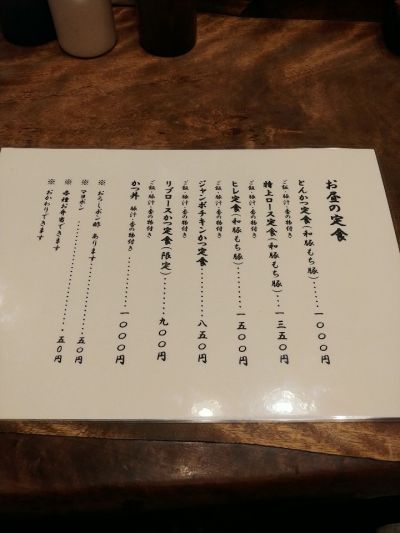 お昼の定食
とんかつ定食(和豚もち豚)……一〇〇〇円
ご飯・豚汁・香の物付き
特上ロース定食(和豚もち豚)…一三五〇円
ご飯・豚汁・香の物付き
ヒレ定食(和豚もち豚)………一五〇〇円
ご飯・豚汁・香の物付き
ジャンボチキンかつ定食………八五〇円
ご飯・豚汁・香の物付き
リブロースかつ定食(限定)……九〇〇円
ご飯・豚汁・香の物付き
かつ丼 豚汁・香の物付き………一〇〇〇円
※ おろしポン酢 あります
※ マヨポン………………五〇円
※ 各種お弁当できます………五〇円
※ おかわりできます